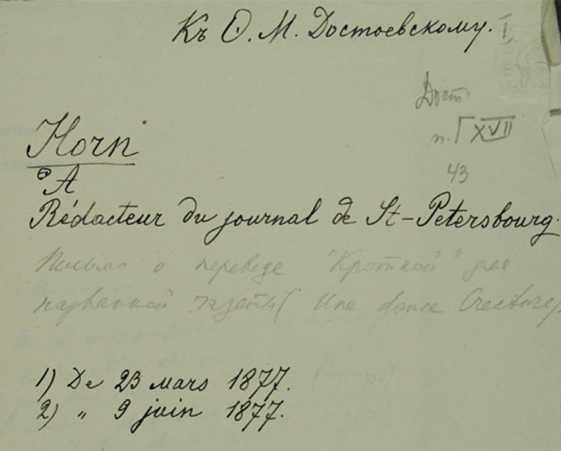 Къ Ѳ. М. Достоевскому. I
Дост
п. XVII
43
Horn
A
Rédacteur du journal de St-Petersbourg.
Письмо о переводе "Кроткой" для
названной газеты (Une douce Creature)
1) De 23 mars 1877.
2) „ 9 juin 1877.